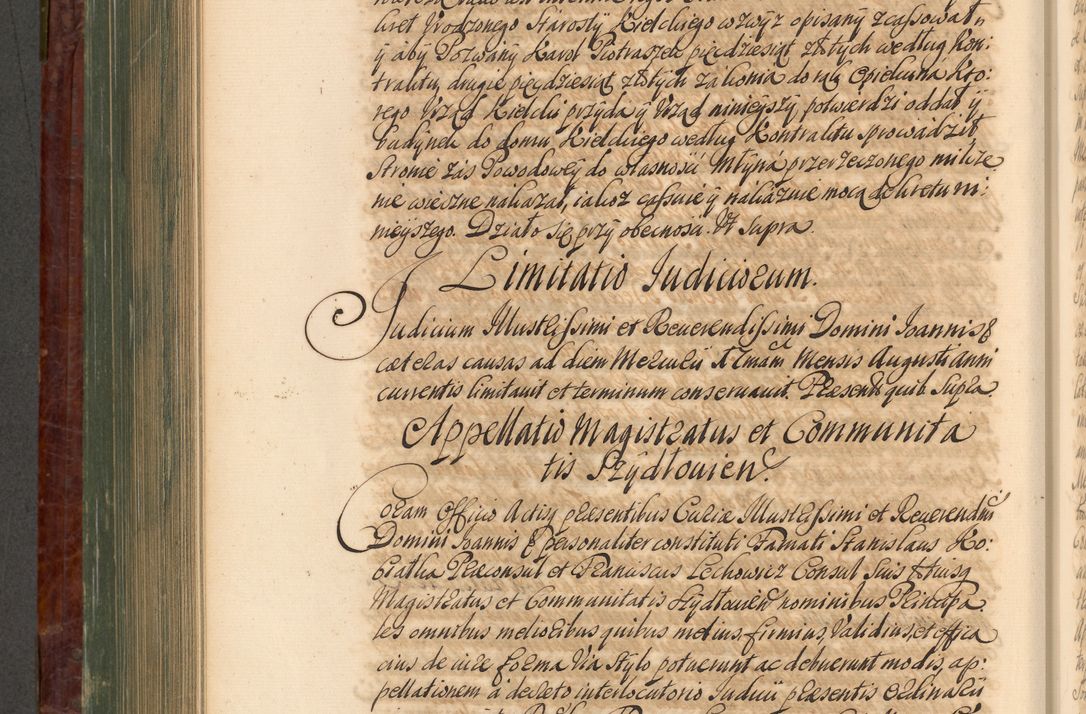 kret Urodzonego Starosty Kielckiego wzwyż opisany zcassował
y aby Pozwany Karol Piotraszek pięćdziesiąt złotych według Kon:
traktu, drugie pięćdziesiąt złotych za konia do rąk Opiekuna kto:
rego Urząd Kielcki przyda y Urząd ninieyszy potwierdzi oddał y
budynek do domu Kielckiego według Kontraktu sprowadził
Stronie zaś Powodowey do własności Młyna przerzeczonego milcze
nie wieczne nakazał, iakoż cassuie y nakazuie mocą dekretu ni:
nieyszego. Działo się przy obecności. Ut Supra.
Limitatio Iudiciorum.
Iudicium Illustrissimi et Reverendissimi Domini Ioannis &
cæteras causas ad diem Mercurii Xmam Mensis Augusti anni
currentis limitavit et terminum conservavit. Præsentib quib. Supra
Appellatio Magistratus et Communita
tis Szydłovien.
Coram Officio Actisq præsentibus Curiæ Illustrissimi et Reverendmi
Domini Ioannis & personaliter constituti Famati Stanislaus Ko:
bratka Præconsul et Franciscus Lechowicz Consul Suis et huiq
Magistratus et Communitatis Szydłovien nominibus Principa
les omnibus melioribus quibus melius, firmius, Validius, et effica
cius de iure forma Via Stylo potuerunt ac debuerunt modis, ap:
pellationem á decreto interlocutorio Iudicii præsentis Ordinarii